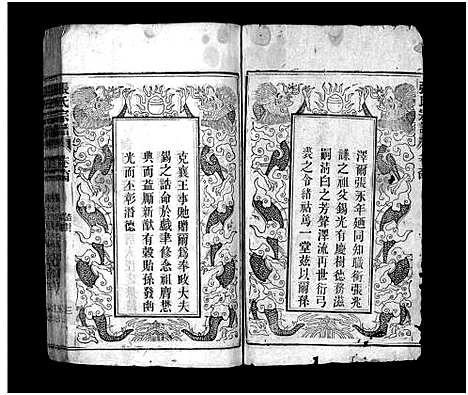 澤爾張永年廼同知職銜張兆
謙之祖父錫光有慶樹德務滋
嗣清白之芳聲澤流再世衍弓
裘之令緒祜篤一堂茲以爾孫
克襄王事貤贈爾為奉政大夫
錫之誥命於戲聿修念祖膺懋
典而益勵新猷有穀貽孫發幽
光而丕彰潛德
張氏宗譜